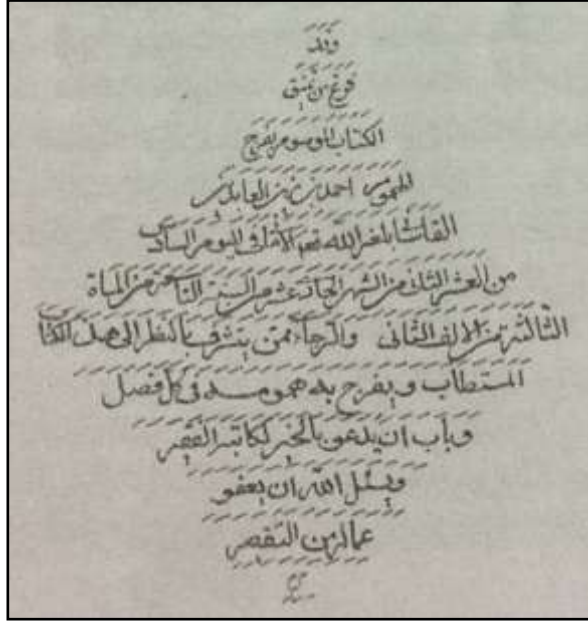 وقد
فرغ من تنميق
الكتاب الموسوم بفرج
المهموم احمد بن زين العابدين
القاشا بلغه الله تعالى الأمانى اليوم السادس
من العشر الثانى من الشهر الحادى عشر من السنة التاسعة من المائة
الثالثة من الالف الثانى والرجاء ممن يتشرف بالنظر الى هذا الكتاب
المستطاب ويفرج به همومه فى كل فصل
وباب ان يدعو بالخير لكاتبه الفقير
ويسئل الله ان يعفو
عما لزمه التقصير